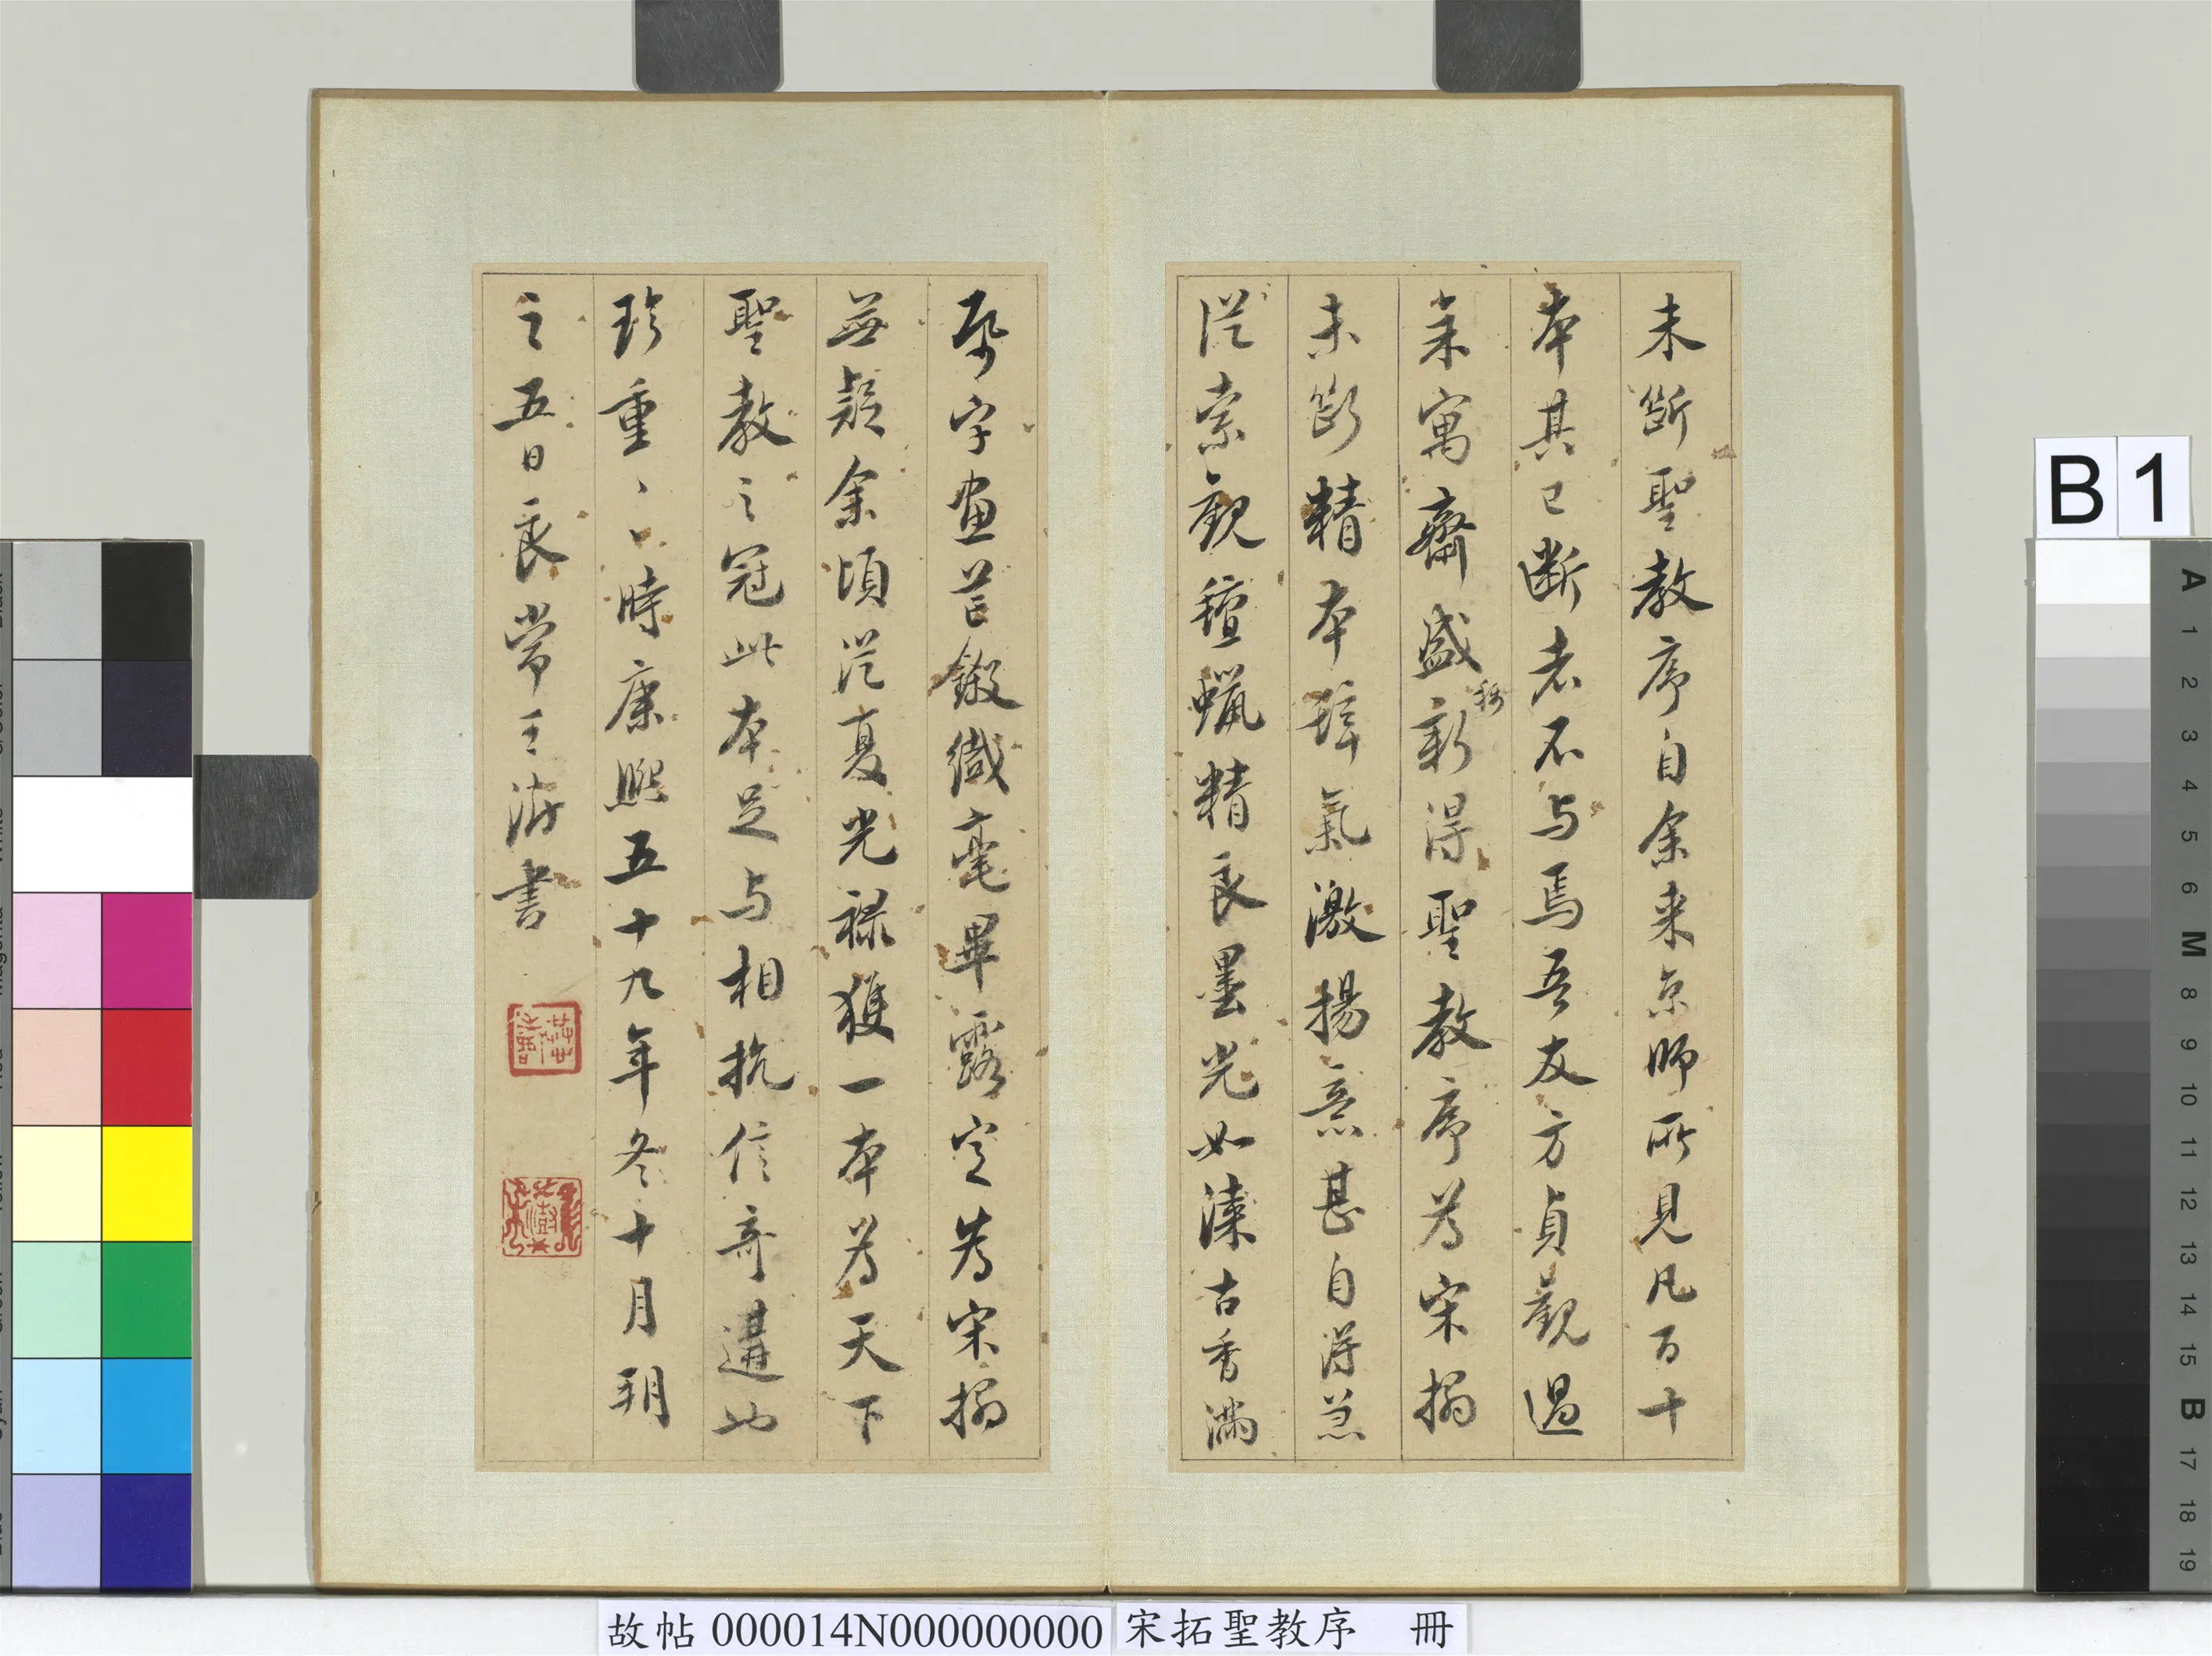 未斷聖教序自余來京師所見凡百十
本其已斷者不与焉吾友方貞觀過
余寓齋盛稱新得聖教序為宋搨
未斷精本辭氣激揚意甚自得急
從索觀氊蠟精良墨光如漆古香滿
紙字畫芒鎩纎毫畢露定為宋搨
無疑余頃從夏光祿獲一本為天下
聖教之冠此本足与相抗信奇遘也
珍重々々時康熙五十九年冬十月朔
之五日良常王澍書
故帖 000014N000000000 宋拓聖教序 冊
B 1
A
1
2
3
4
5
6
M
8
9
10
11
12
13
14
15
B
17
18
19